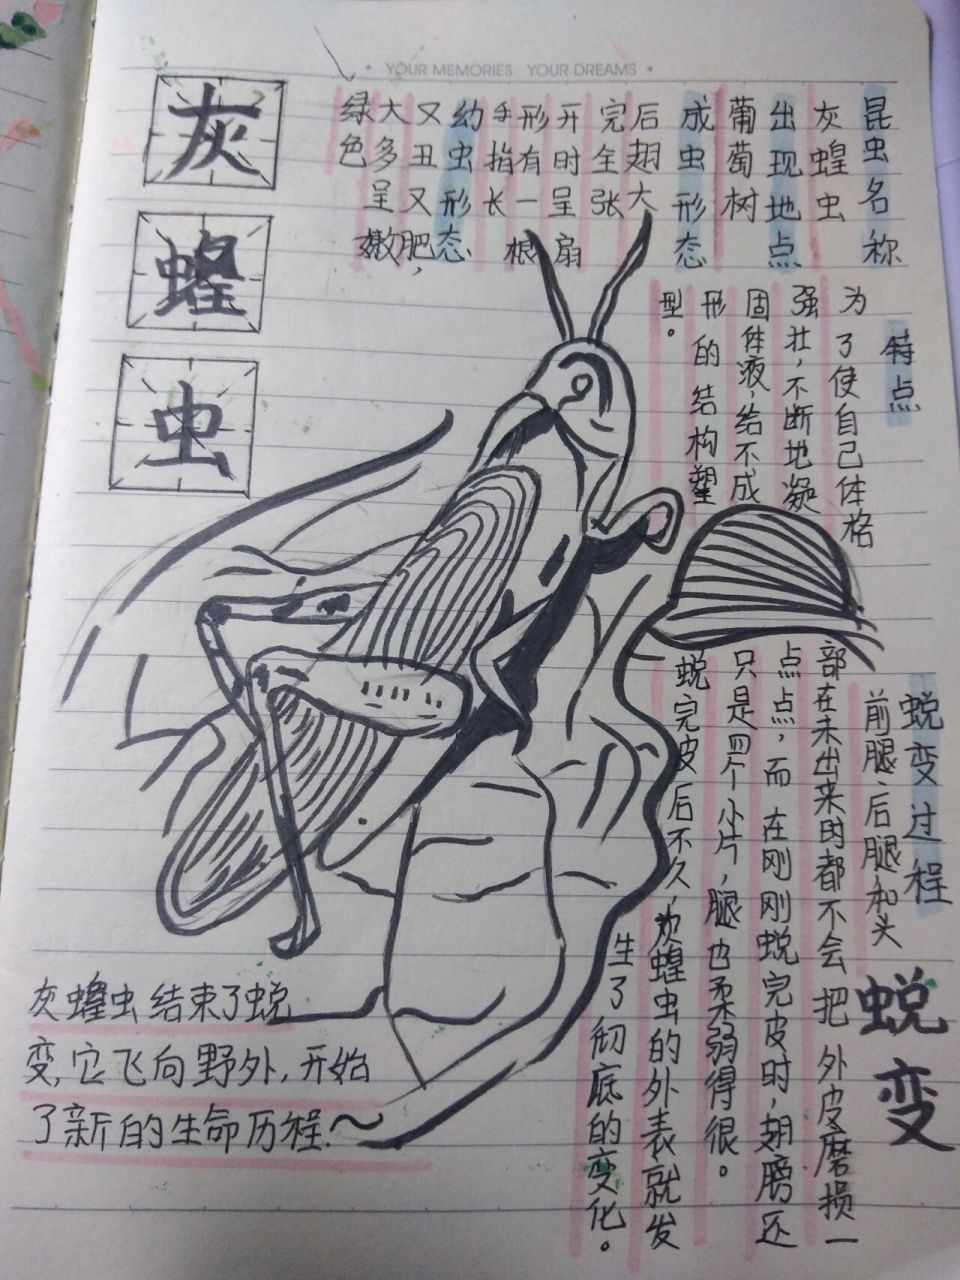 • YOUR MEMORIES YOUR DREAMS •
灰
蝗
虫
昆虫名称
灰蝗虫
出现地点
葡萄树
成虫形态
后翅大
完全张
开时呈扇
形有一根
手指长
幼虫形态
又丑又肥，
大多呈嫩
绿色
特点
为了使自己体格
强壮，不断地凝
固体液，给不成
形的结构塑
型。
蜕变过程
前腿后腿和头
部在未出来时都不会把外皮磨损一
点点，而在刚刚蜕完皮时，翅膀还
只是四个小片，腿也柔弱得很。
蜕完皮后不久，灰蝗虫的外表就发
生了彻底的变化。
蜕变
灰蝗虫结束了蜕
变，它飞向野外，开始
了新的生命历程～